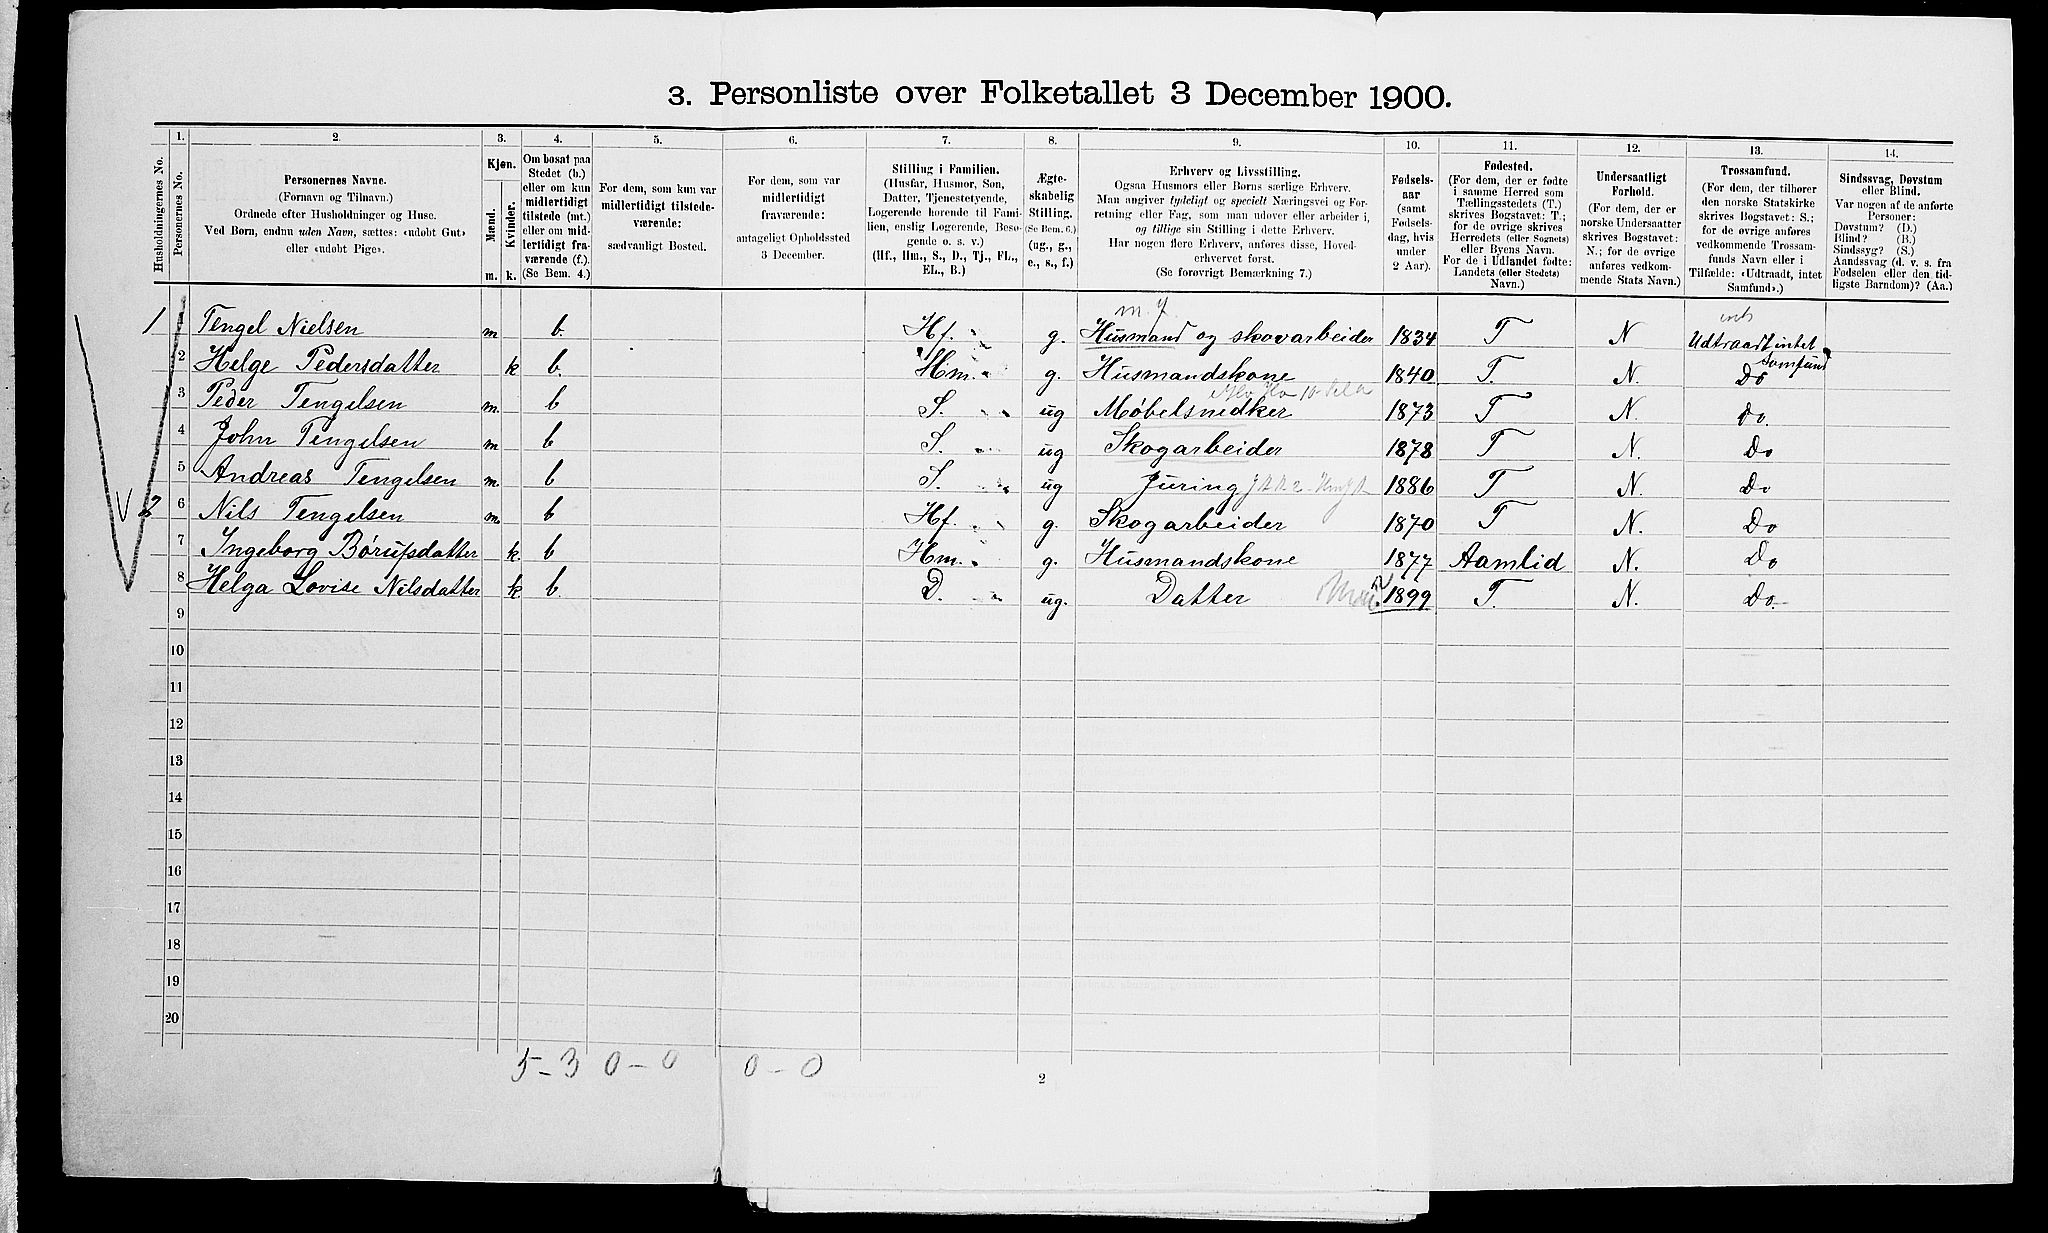 3. Personliste over Folketallet 3 December 1900.
Husholdningernes No.
1.
Personernes No.
2.
Personernes Navne.
(Fornavn og Tilnavn.)
Ordnede efter Husholdninger og Huse.
Ved Børn, endnu uden Navn, sættes: «udøbt Gut»
eller «udøbt Pige».
3.
Kjøn.
Mænd.
Kvinder.
m. k.
4.
Om bosat paa
Stedet (b.)
eller om kun
midlertidigt
tilstede (mt.)
eller om mid-
lertidigt fra-
værende (f.).
(Se Bem. 4.)
5.
For dem, som kun var
midlertidigt tilstede-
værende:
sædvanligt Bosted.
6.
For dem, som var
midlertidigt
fraværende:
antageligt Opholdssted
3 December.
7.
Stilling i Familien.
(Husfar, Husmor, Søn,
Datter, Tjenestetyende,
Logerende hørende til Fami-
lien, enslig Logerende, Besø-
gende o. s. v.)
(Hf., Hm., S., D., Tj., FL.,
EL., B.)
8.
Ægte-
skabelig
Stilling.
(Se Bem. 6.)
(ug., g.,
e., s., f.)
9.
Erhverv og Livsstilling.
Ogsaa Husmors eller Børns særlige Erhverv.
Man angiver tydeligt og specielt Næringsvei og For-
retning eller Fag, som man udøver eller arbeider i,
og tillige sin Stilling i dette Erhverv.
Har nogen flere Erhverv, anføres disse, Hoved-
erhvervet først.
(Se forøvrigt Bemærkning 7.)
10.
Fødsels-
aar
(samt
Fødsels-
dag, hvis
under
2 Aar).
11.
Fødested.
(For dem, der er fødte
i samme Herred som
Tællingsstedets (T.)
skrives Bogstavet: T.;
for de øvrige skrives
Herredets (eller Sognets)
eller Byens Navn.
For de i Udlandet fødte:
Landets (eller Stedets)
Navn.)
12.
Undersaatligt
Forhold.
(For dem, der er
norske Undersaatter
skrives Bogstavet:
N.; for de øvrige
anføres vedkom-
mende Stats Navn.)
13.
Trossamfund.
(For dem, der tilhører
den norske Statskirke
skrives Bogstavet: S.;
for de øvrige anføres
vedkommende Trossam-
funds Navn eller i
Tilfælde: «Udtraadt, intet
Samfund».)
14.
Sindssvag, Døvstum
eller Blind.
Var nogen af de anførte
Personer:
Døvstum? (D.)
Blind? (B.)
Sindssyg? (S.)
Aandssvag (d. v. s. fra
Fødselen eller den tid-
ligste Barndom)? (Aa.)
1 1 Tengel Nielsen m b. Hf. g. Husmand og skovarbeider 1834 T N Udtraadt intet Samfund
2 Helge Pedersdatter k b. Hm. g. Husmandskone 1840 T. N. Do
3 Peder Tengelsen m. b S. ug Møbelsnedker 1873 T N. Do.
4 John Tengelsen m b S. ug Skogarbeider 1878 T N. Do
5 Andreas Tengelsen m. b S. ug Juring 1886 T N. Do
2 6 Nils Tengelsen m. b Hf. g. Skogarbeider 1870 T N. Do
7 Ingeborg Børufsdatter k b Hm. g. Husmandskone 1877 Aamlid N. Do
8 Helga Lovise Nilsdatter k b. D. ug. Datter 1899 T. N. Do.
9
10
11
12
13
14
15
16
17
18
19
20
5 - 3 0 - 0 0 - 0
2